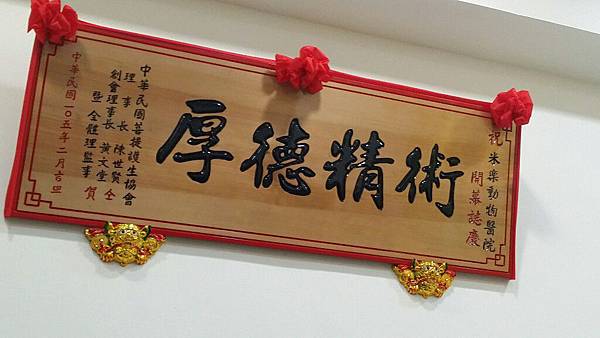 祝 米楽動物醫院
開幕誌慶
術精德厚
中華民國菩提護生協會
理事長 陳世賢
創會理事長 黃文堂
暨全體理監事
仝賀
中華民國一0五年二月吉旦